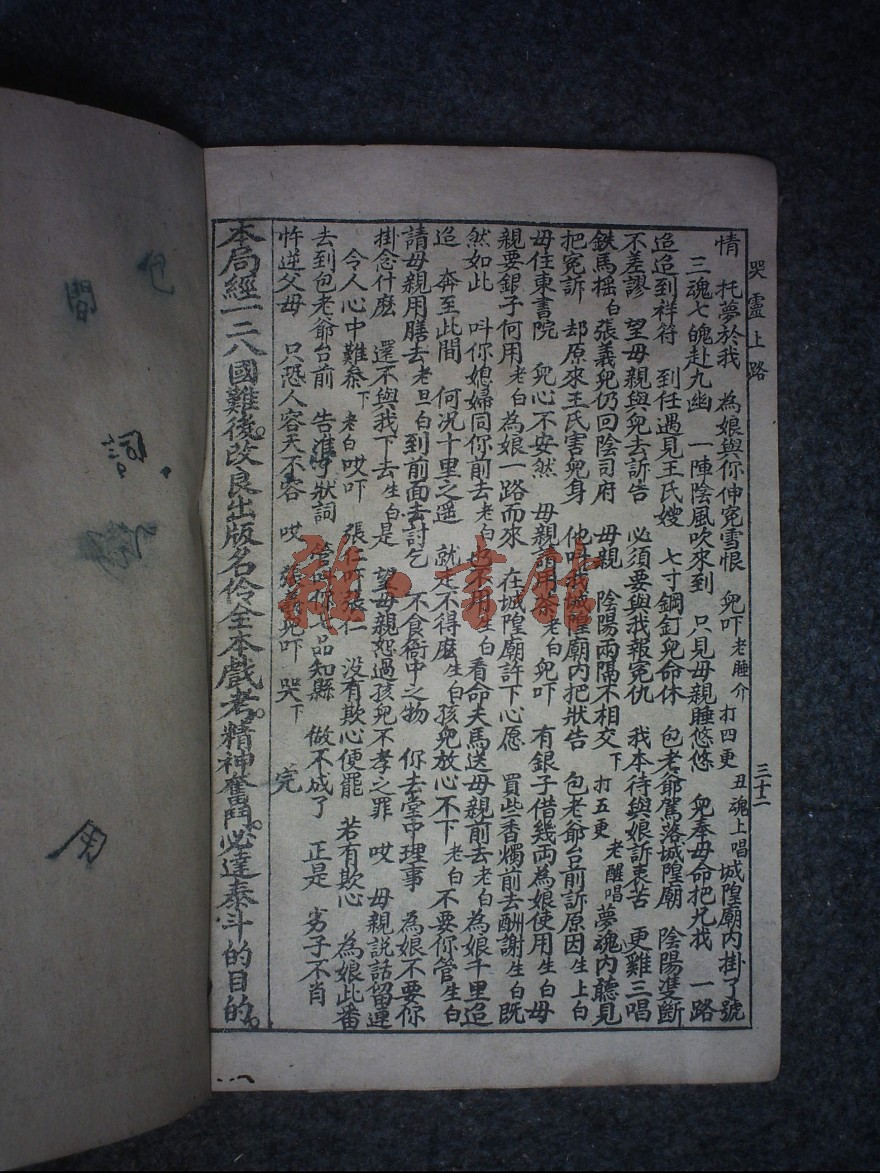 哭靈上路
三十二
情 托夢於我 為娘與你伸冤雪恨 兒吓 老睡介 打四更 丑魂上唱 城隍廟內掛了號
三魂七魄赴九幽 一陣陰風吹來到 只見母親睡悠悠 兒奉母命把兄找 一路
追追到祥符 到任遇見王氏嫂 七寸鋼釘兒命休 包老爺駕落城隍廟 陰陽準斷
不差謬 望母親與兒去訴告 必須要與我報冤仇 我本待與娘訴衷苦 更雞三唱
鉄馬搖 白張義兒仍回陰司府 母親 陰陽兩隔不相交 下 打五更 老醒唱 夢魂內聽見
把冤訴 却原來王氏害兒身 他叫我城隍廟內把狀告 包老爺台前訴原因 生上白
母住東書院 兒心不安然 母親請用茶 老白兒吓 有銀子借幾両為娘使用 生白母
親要銀子何用 老白為娘一路而來 在城隍廟許下心愿 買些香燭前去酬謝 生白既
然如此 叫你媳婦同你前去 老白也不用 生白看命夫馬送母親前去 老白為娘千里追
追 奔至此間 何況十里之遥 就去不得麽 生白孩兒放心不下 老白不要你管 生白
請母親用膳去 老旦白到前面去討乞 不食衙中之物 你去堂中理事 為娘不要你
掛念什麽 還不與我下去 生白是 望母親恕過孩兒不孝之罪 哎 母親說話留連
令人心中難叅 下 老白哎吓 張仁吓張仁 没有欺心便罷 若有欺心 為娘此番
去到包老爺台前 告準了狀詞 你七品知縣 做不成了 正是 劣子不肖
忤逆父母 只恐人容天不容 哎 張義兒吓 哭下 完
本局經一二八國難後。改良出版名伶全本戲考。精神奮鬥。必達泰斗的目的。
包
間
用
雜·書館